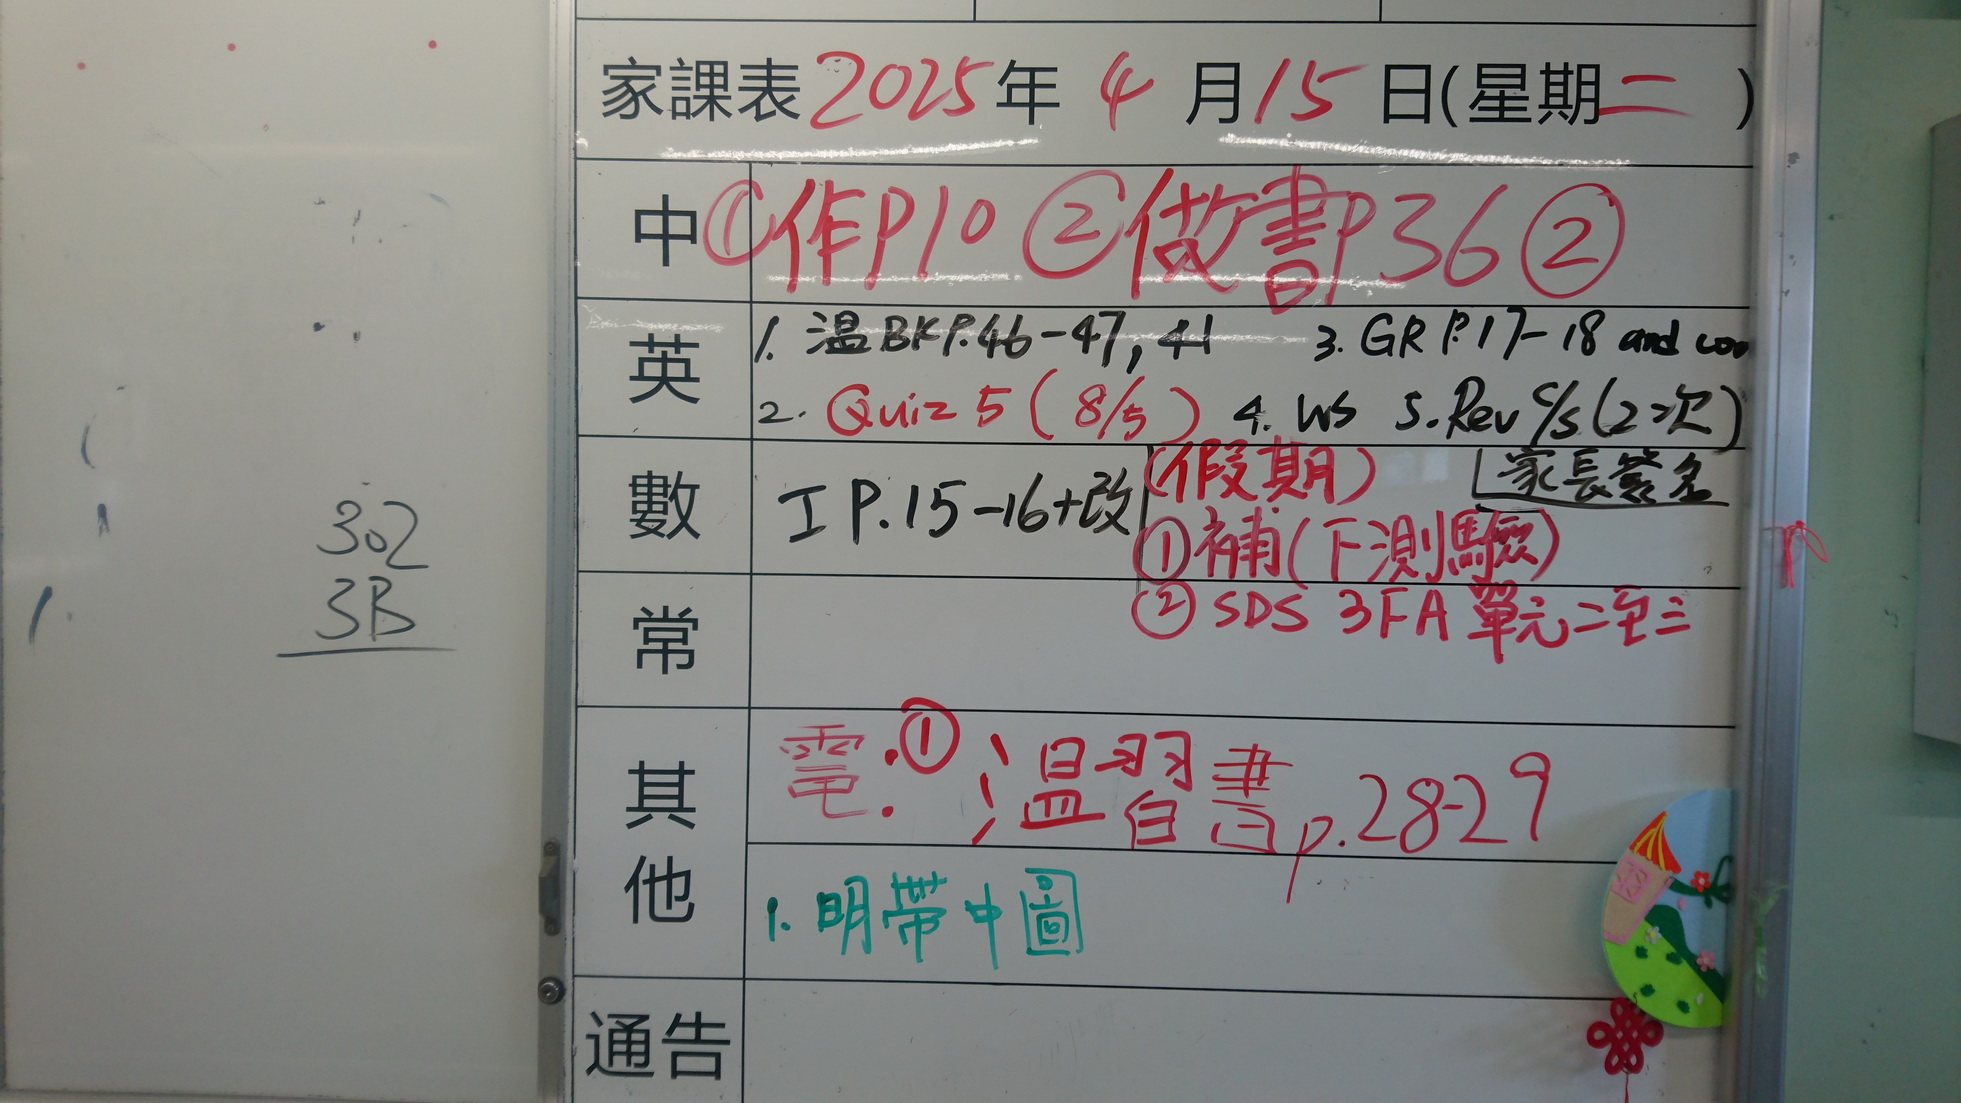 302
3B
家課表2025年4月15日(星期二)
中 ①作P10 ②做書P36②
英 1. 温BKP.46-47, 41 3. GR P.17-18 and
2. Quiz 5 (8/5) 4. WS 5. Rev C/S (2次)
數 I P.15-16+改 (假期) 家長簽名
①補(下測驗)
常 ②SDS 3FA 單元二至三
其他 電:① 温習書p.28-29
1. 明帶中圖
通告